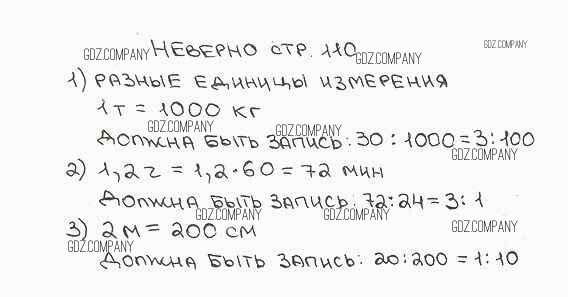 НЕВЕРНО СТР. 110
GDZ.COMPANY GDZ.COMPANY GDZ.COMPANY
1) РАЗНЫЕ ЕДИНИЦЫ ИЗМЕРЕНИЯ
1Т = 1000 КГ
GDZ.COMPANY GDZ.COMPANY
ДОЛЖНА БЫТЬ ЗАПИСЬ: 30 : 1000 = 3 : 100
GDZ.COMPANY
2) 1,2 ч = 1,2 · 60 = 72 МИН
ДОЛЖНА БЫТЬ ЗАПИСЬ: 72 : 24 = 3 : 1
GDZ.COMPANY GDZ.COMPANY GDZ.COMPANY
3) 2 М = 200 СМ
GDZ.COMPANY
ДОЛЖНА БЫТЬ ЗАПИСЬ: 20 : 200 = 1 : 10